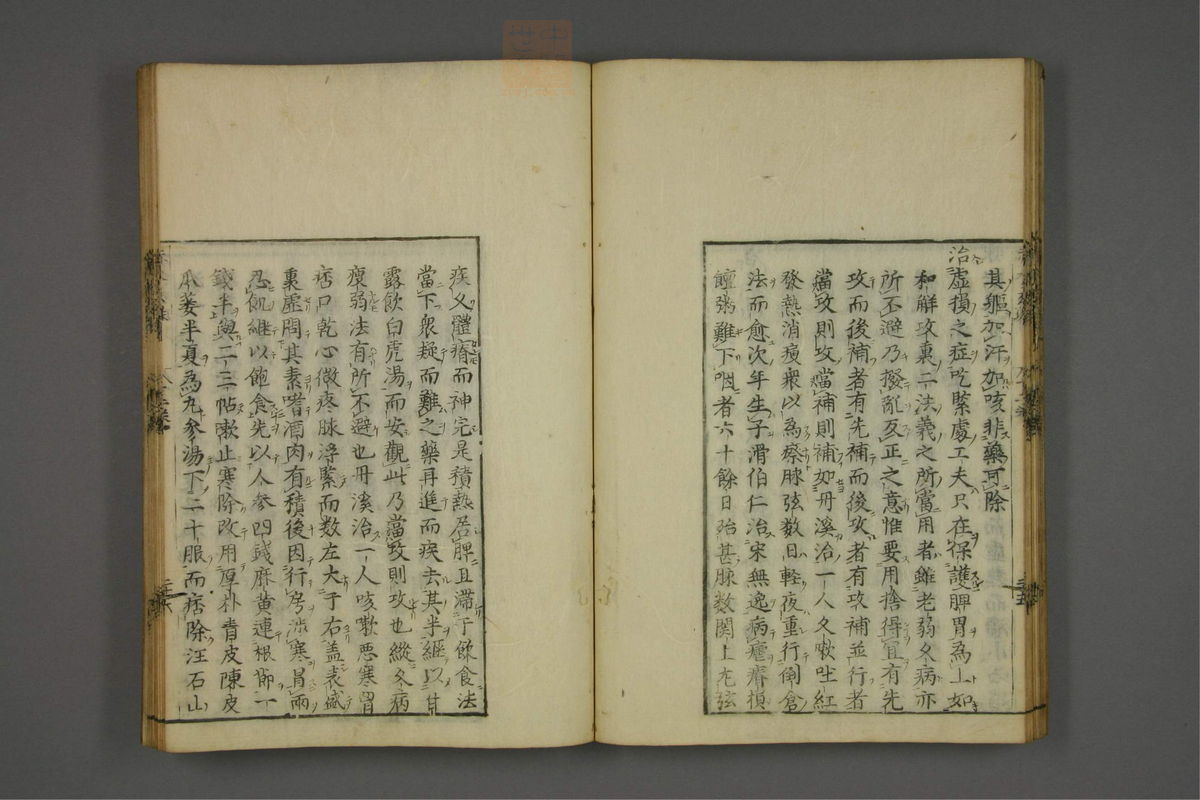 其軀加汗加咳非藥可除
治虛損之症吃緊處工夫只在保護脾胃為上如
和解攻裏二法義之所當用者雖老弱久病亦
所不避乃撥亂反正之意惟要用捨得宜有先
攻而後補者有先補而後攻者有攻補並行者
當攻則攻當補則補如丹溪治一人久嗽吐紅
發熱消瘦衆以為瘵脉弦数日輕夜重行倒倉
法而愈次年生子滑伯仁治宋無逸病瘧瘠損
饘粥難下咽者六十餘日殆甚脉数関上尤弦
疾又體瘠而神完是積熱居脾且滯于飲食法
當下衆疑而難之藥再進而疾去其半継以甘
露飲白虎湯而安觀此乃當攻則攻也縱久病
瘦弱法有所不避也丹溪治一人咳嗽悪寒胃
痞口乾心微疼脉浮緊而数左大于右盖表盛
裏虛問其素嗜酒肉有積後因行房渉寒冐雨
忍飢継以飽食先以人参四錢麻黄連根節一
錢半與二三帖嗽止寒除改用厚朴青皮陳皮
瓜蔞半夏為丸参湯下二十服而痞除汪石山